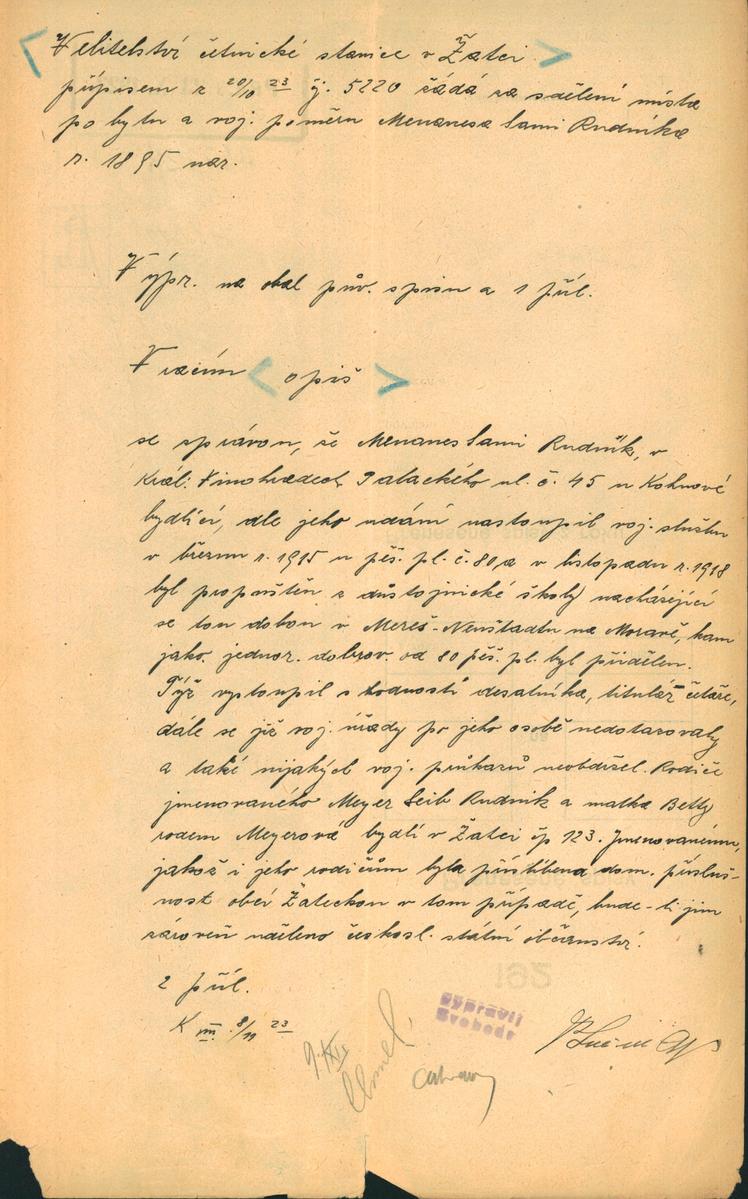 Velitelství četnické stanice v Žatci
přípisem z 20/10 23 čj. 5220 žádá za sdělení místa
pobytu a voj. poměru Menanesa Sami Rudnika
r. 1895 nar.
Výpr. na obal pův. spisu a 1 příl.
Vracím opis
se zprávou, že Menanes Sami Rudnik, v
Král. Vinohradech Palackého ul. č. 45 u Kohnové
bydlící, dle jeho udání nastoupil voj. službu
v březnu r. 1915 u pěš. pl. č. 80 a v listopadu r. 1918
byl propuštěn z důstojnické školy nacházející
se tou dobou v Mereš. Neustadtu na Moravě, kam
jako jednor. dobrov. od 80 pěš. pl. byl přidělen.
Týž vystoupil s hodností desátníka, titulář četaře,
dále se již voj. úřady po jeho osobě nedotazovaly
a také nijakých voj. průkazů neobdržel. Rodiče
jmenovaného Meyer Leib Rudnik a matka Betty
rodem Meyerova bydlí v Žatci čp 123. Jmenovanému,
jakož i jeho rodičům byla přislíbena dom. přísluš-
nost obcí Žateckou v tom případě, bude-li jim
zároveň uděleno českosl. státní občanství.
2 příl.
K III. 8/11 23
Vypravil
Svoboda
9. XI.